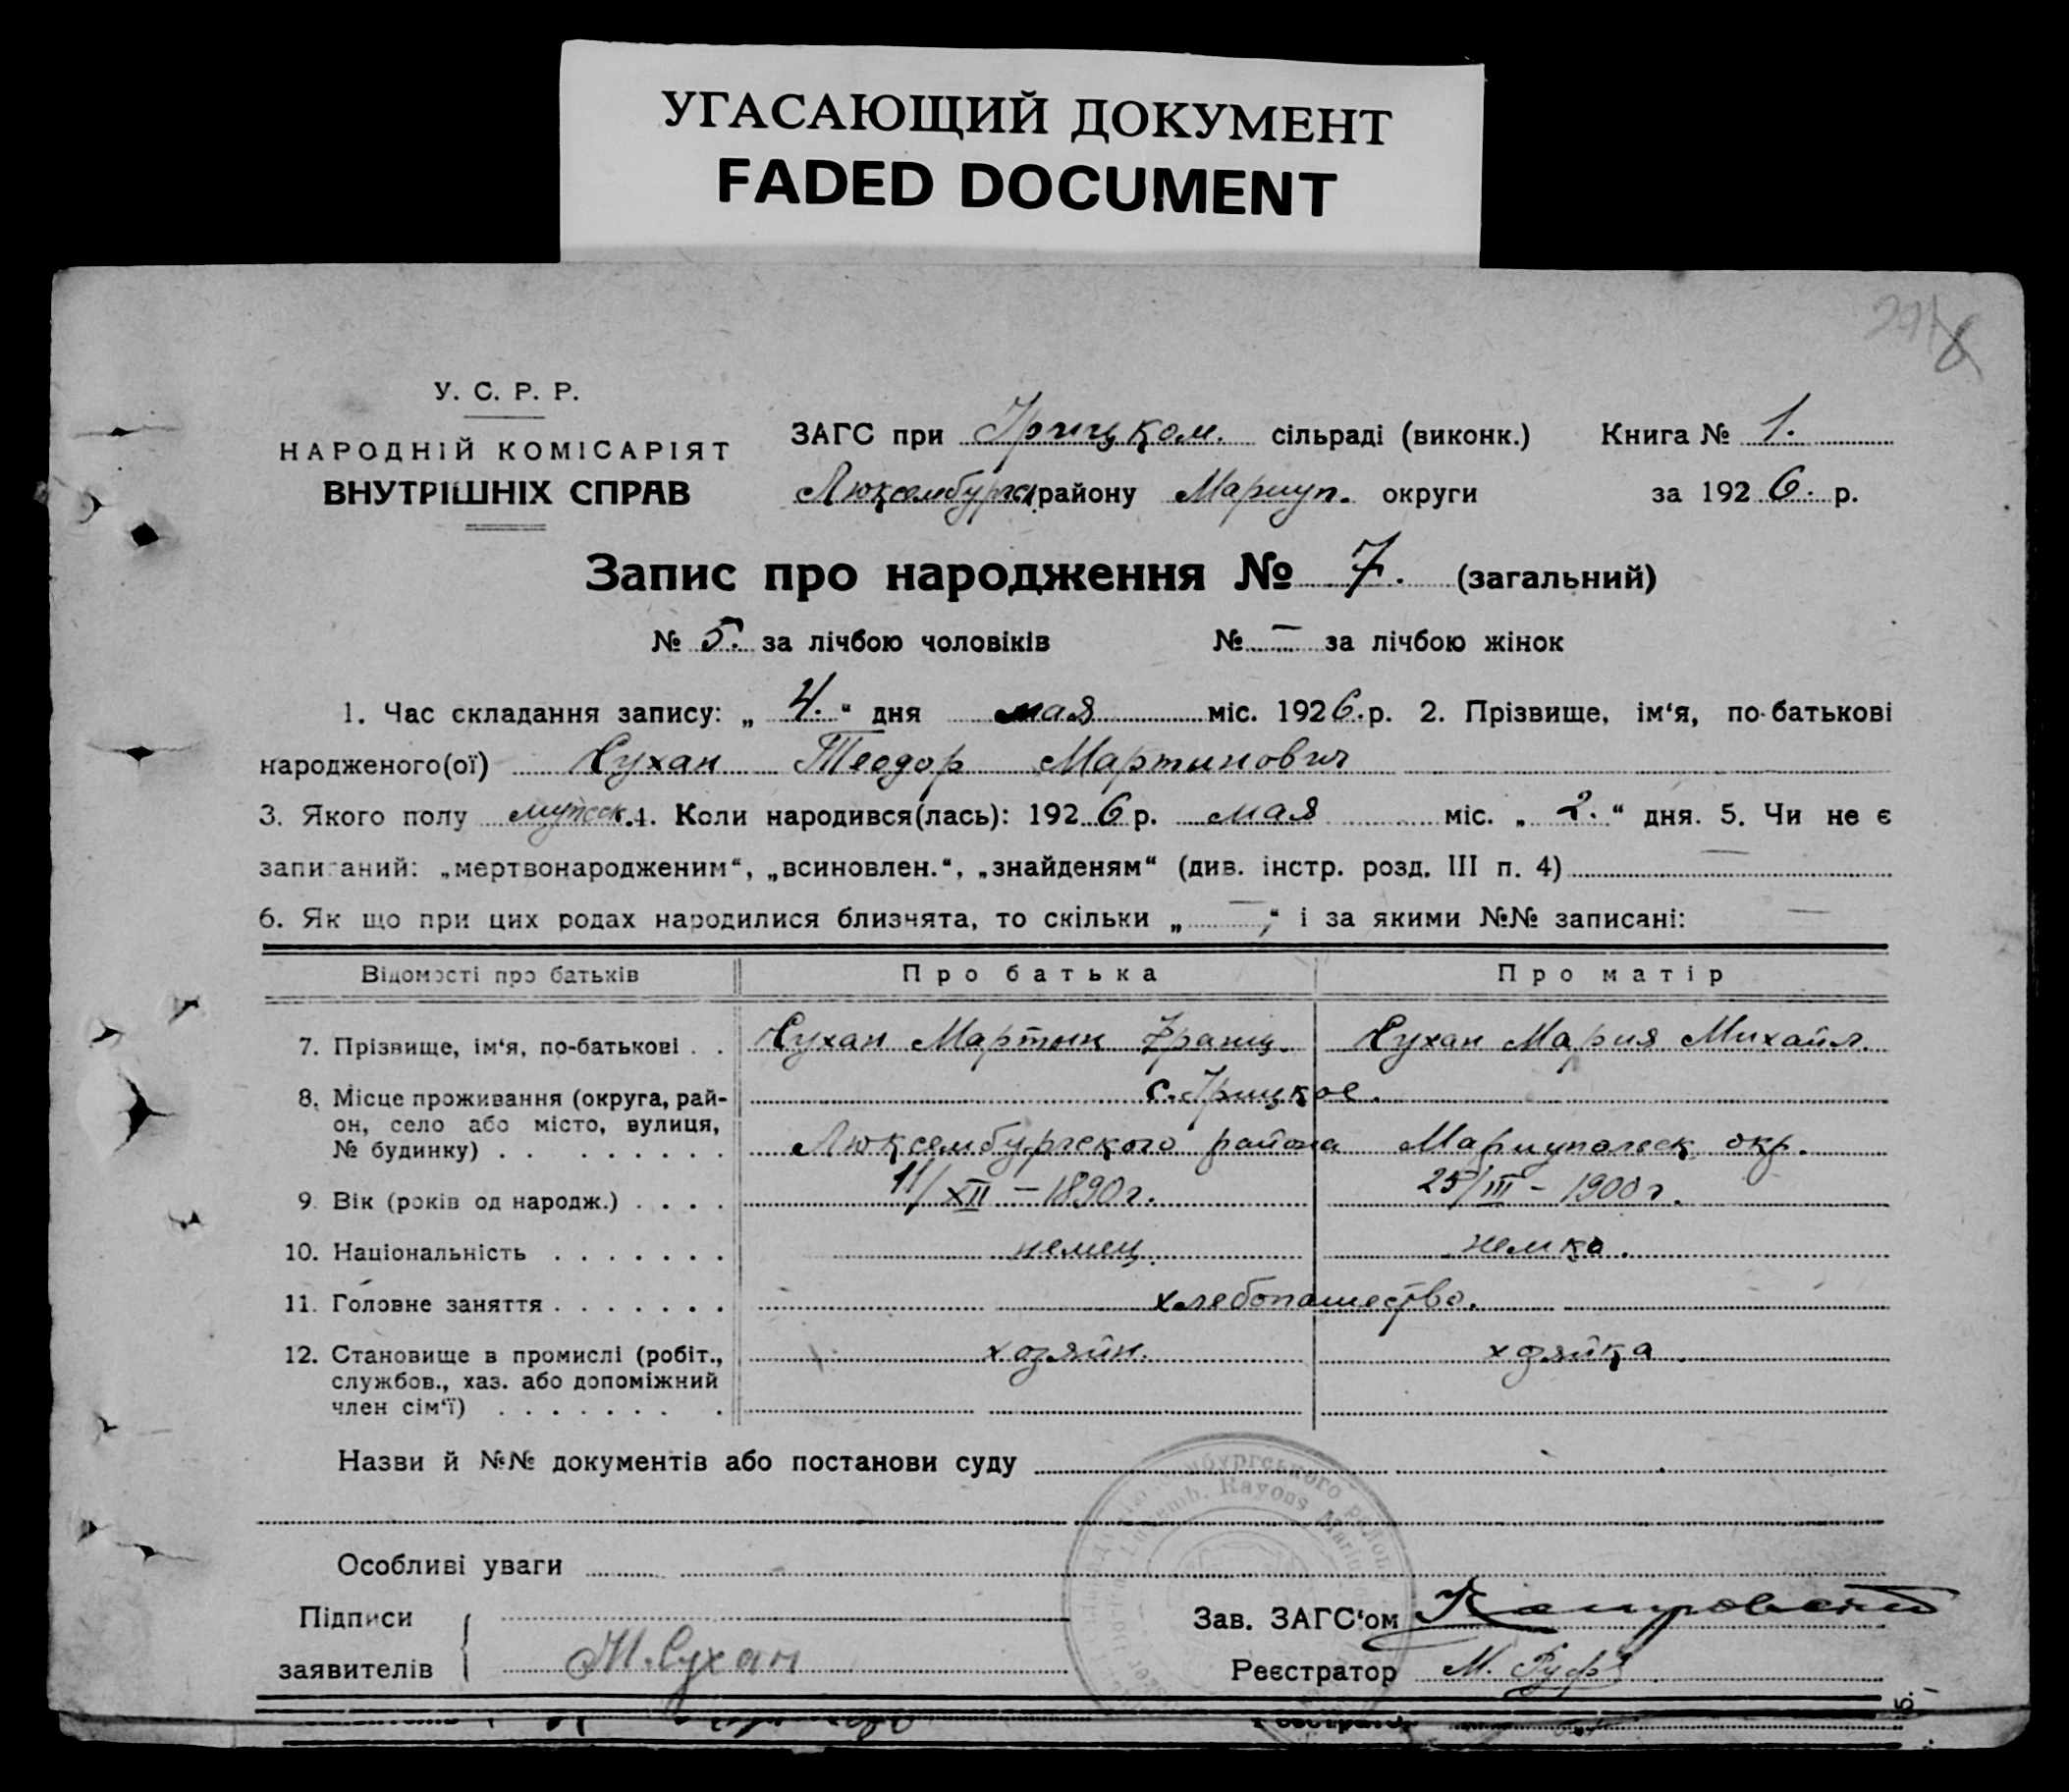 УГАСАЮЩИЙ ДОКУМЕНТ
FADED DOCUMENT
У. С. Р. Р.
НАРОДНІЙ КОМІСАРІЯТ
ВНУТРІШНІХ СПРАВ
ЗАГС при Грицком. сільраді (виконк.) Книга № 1.
Люксембургск району Мариуп. округи за 1926. р.
Запис про народження № 7. (загальний)
№ 5. за лічбою чоловіків № — за лічбою жінок
1. Час складання запису: „ 4. “ дня мая міс. 1926. р. 2. Прізвище, ім‘я, по-батькові
народженого(ої) Сухан Теодор Мартинович
3. Якого полу мужск. 4. Коли народився(лась): 1926 р. мая міс. „ 2. “ дня. 5. Чи не є
записаний: „мертвонародженим“, „всиновлен.“, „знайденям“ (див. інстр. розд. III п. 4) —
6. Як що при цих родах народилися близнята, то скільки „ — “ і за якими №№ записані: —
Відомості про батьків Про батька Про матір
7. Прізвище, ім‘я, по-батькові . . Сухан Мартын Франц. Сухан Мария Михайл.
8. Місце проживання (округа, рай-
он, село або місто, вулиця,
№ будинку) . . . . . . . .
с. Грицкое.
Люксембургского района Мариупольск окр.
9. Вік (років од народж.) . . . . 11/XII – 1890 г. 25/III – 1900 г.
10. Національність . . . . . . . немец. немка.
11. Головне заняття . . . . . . . хлебопашество.
12. Становище в промислі (робіт.,
службов., хаз. або допоміжний
член сім‘ї) . . . . . . . .
хозяйн. хозяйка
Назви й №№ документів або постанови суду
Особливі уваги
Підписи
заявителів М. Сухан
Зав. ЗАГС‘ом
Реєстратор М.